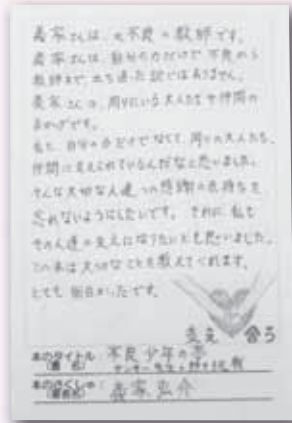 義家さんは、元不良の教師です。
義家さんは、自分の力だけで不良から
教師まで、立ち直った訳ではありません。
義家さんの、周りにいる大人たちや仲間の
おかげです。
私も、自分の力だけでなくて、周りの大人たち、
仲間に支えられているんだなと思いました。
そんな大切な人達への感謝の気持ちを
忘れないようにしたいです。それに、私も
その人達の支えになりたいとも思いました。
この本は大切なことを教えてくれます。
とても面白かったです。
支え合う
本のタイトル：不良少年の夢
（書名）
本のさくしゃ：義家弘介
（著者名）